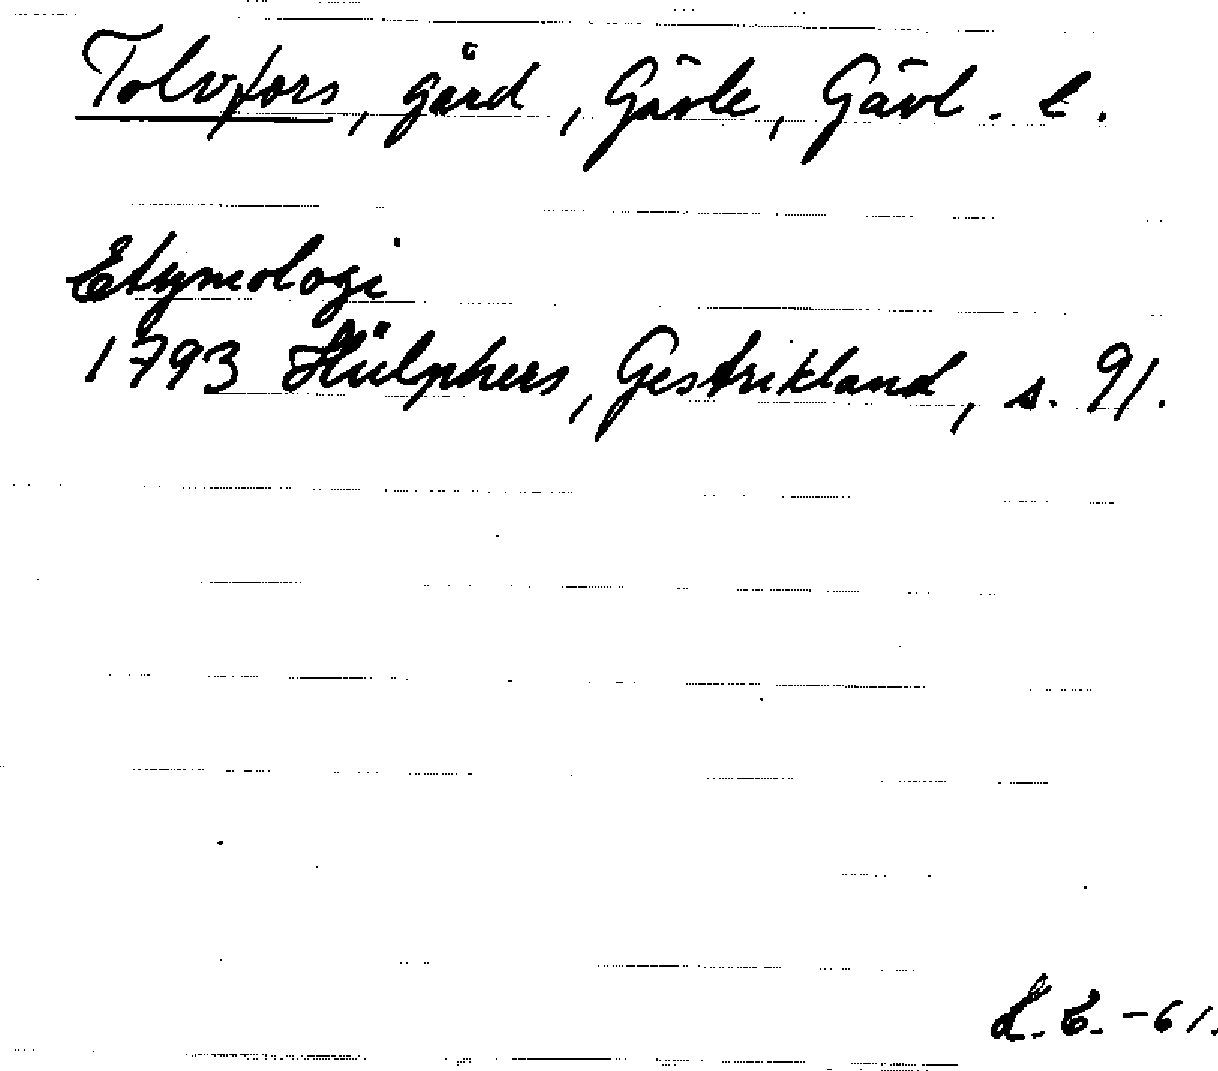 Tolvfors, gård, Gävle, Gävl. l.
Etymologi
1793 Hülphers, Gestrikland, s. 91.
-61.